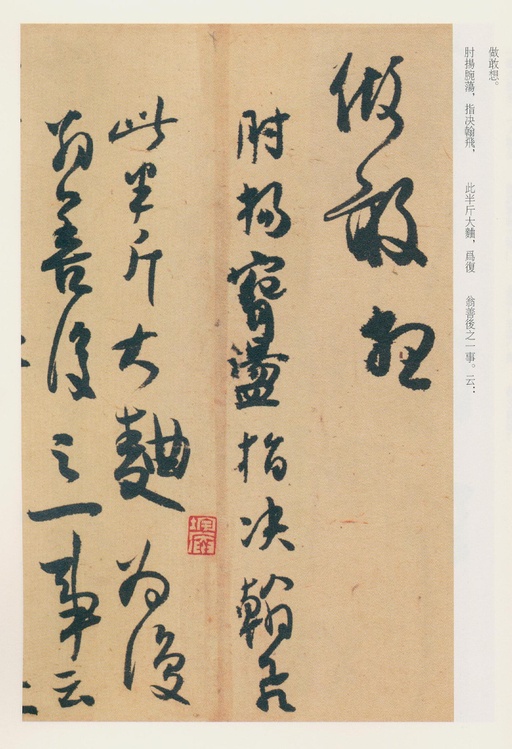 做敢想。
肘揚腕蕩，指決翰飛，
此半斤大麯，爲復
翁善後之一事。云：
做敢想
肘揚腕盪指決翰飛
此半斤大麯为復
翁善後之一事云